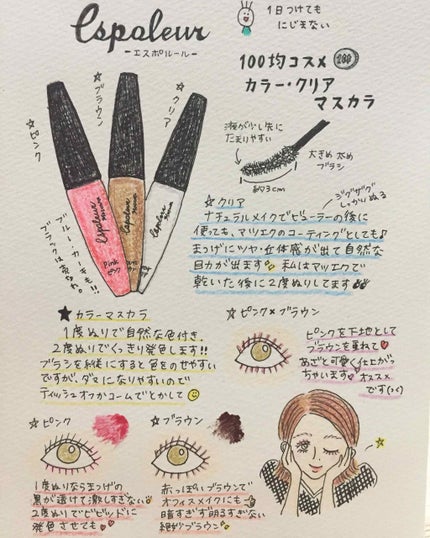 Espoleur
－エスポルール－
1日つけても
にじまない
100均コスメ 100
カラー・クリア
マスカラ
☆ピンク
☆ブラウン
☆クリア
Espoleur
Mascara
Espoleur
Mascara
Espoleur
Mascara
Pink
ブルー・カーキも!!
ブラックは売切れ。
液が少し先に
たまりやすい
大きめ 太め
ブラシ
約3cm
ジグザグで
しっかりぬる
☆クリア
ナチュラルメイクでビューラーの後に
使っても、マツエクのコーティングとしても♪
まつげにツヤ・立体感が出て自然な
目力が出ます 私はマツエクで
乾いた後に2度ぬりしてます
★カラーマスカラ
1度ぬりで自然な色付き、
2度ぬりでくっきり発色します!!
ブラシを縦にすると色をのせやすい
ですが、ダマになりやすいので
ティッシュオフかコームでとかして
☆ピンク×ブラウン
ピンクを下地として
ブラウンを重ねて
あざと可愛く仕上がっ
ちゃいます
オススメ
です
☆ピンク
1度ぬりならまつげの
黒が透けて激しすぎない
2度ぬりでビビッドに
発色させても
☆ブラウン
赤っぽいブラウンで
オフィスメイクにも
暗すぎず明るすぎない
絶妙ブラウン